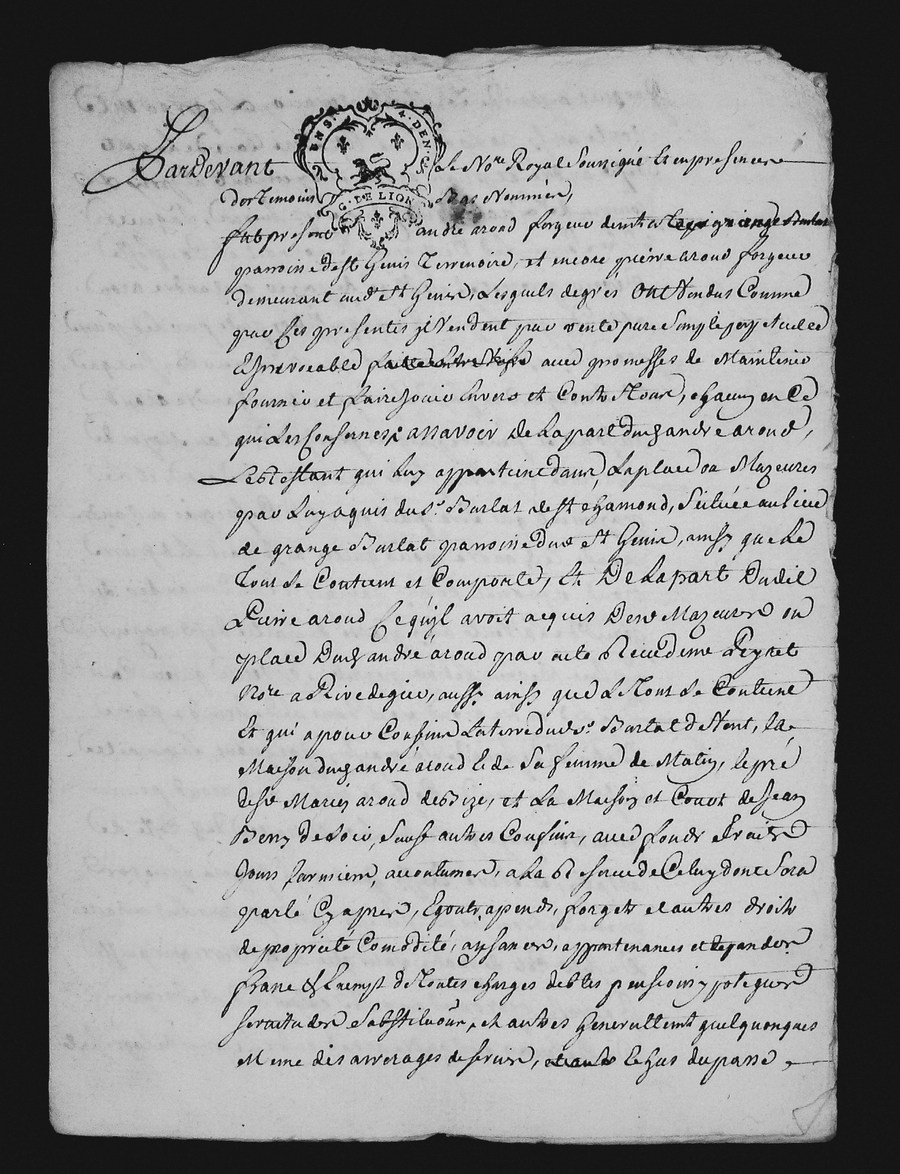 2 ENS. 4. DEN.
G. DE LION
Pardevant le No.re Royal Soussigné Et en presence
des Temoins Bas Nommés,
fut present andré aroud forgeur demt a
parroisse de St Genis Terrenoire, et encore pierre aroud forgeur
demeurant aud. St Genis, Lesquels de grés Ont Vendus Comme
par Ces presentes jl Vendent par vente pure Simple perpetuelle
Et jrrevocable avec promesses de Maintenir
fournir et faire jouir Envers et Contre Tous, chacun en Ce
qui Les Conserne, assavoir De La part dud. andré aroud,
Le Restant qui Luy appartient dans La place ou Mazeures
par Luy aquis du Sr. Burlat de St chamond, Scituée au lieu
de grange Burlat parroisse dud. St Genis, ainsy que Le
Tout Se Contient et Comporte, Et De La part Dudit
Pierre aroud Ce qu'jl avoit acquis Desd. Mazeures ou
place Dud. andré aroud par acte Reçu de me Peyret
No.re a Rive de gier, aussy ainsy que Le Tout Se Contient
Et qui a pour Confins La terre dud. Sr. Burlat de Vent, La
Maison dud. andré aroud & de Sa femme de Matin, le pré
desd. Mariés aroud de Bize, et La Maison et Court de Jean
de Soir, Sauf autres Confins, avec fonds Droits
jours Larmiers, accoutumés, a La Reserve de Celuy dont Sera
parlé Cy apres, Egouts, apends, forgets et autres droits
de proprieté Comodité, aysances, appartenances et dependces
franc & Exempt de Toutes charges debtes pensions ypoteques
servitudes Substitution, et autres Generallemt quelquonques
Meme des arrerages de servis, Lehus du passé,